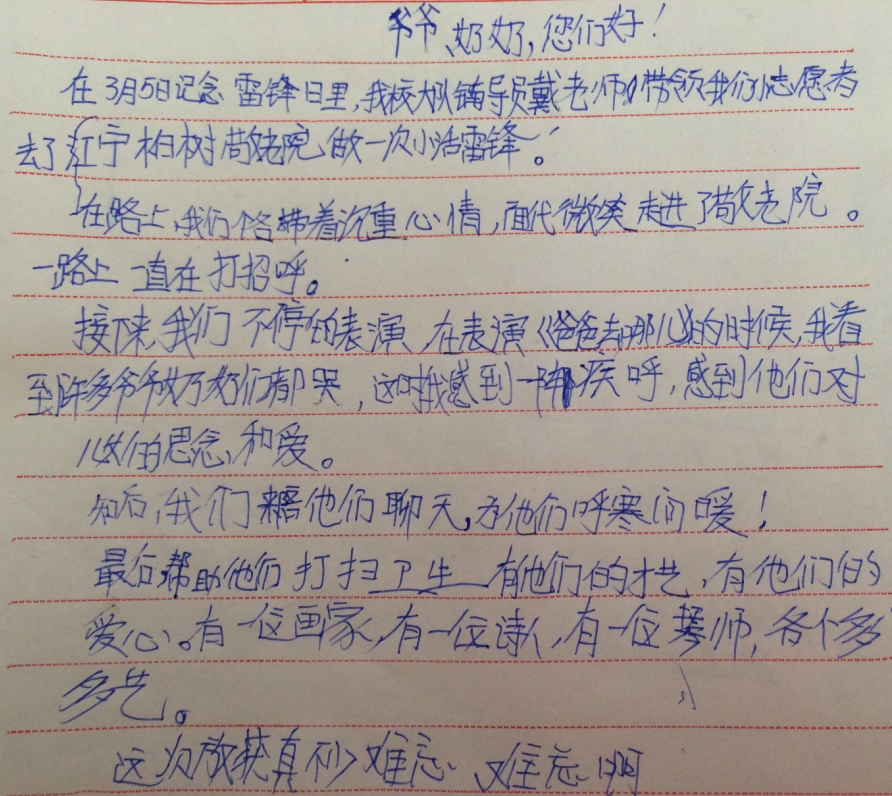 爷爷、奶奶,您们好!
在3月5日记念雷锋日里,我校大队辅导员戴老师带领我们小志愿者
去了江宁柏树敬老院、做一次小活雷锋。
在路上,我们个各带着沉重心情,面代微笑走进了敬老院。
一路上一直在打招呼。
接下来,我们不停的表演,在表演《爸爸去哪儿》的时候,我看
到许多爷爷奶奶们都哭,这时我感到一阵疾呼,感到他们对
儿女们的思念、和爱。
知后,我们 他们聊天,为他们呼寒问暖!
最后帮助他们打扫卫生 有他们的才艺,有他们的
爱心。有一位画家,有一位诗人,有一位琴师,各个多
多艺。
这次 获真不少难忘、难忘啊